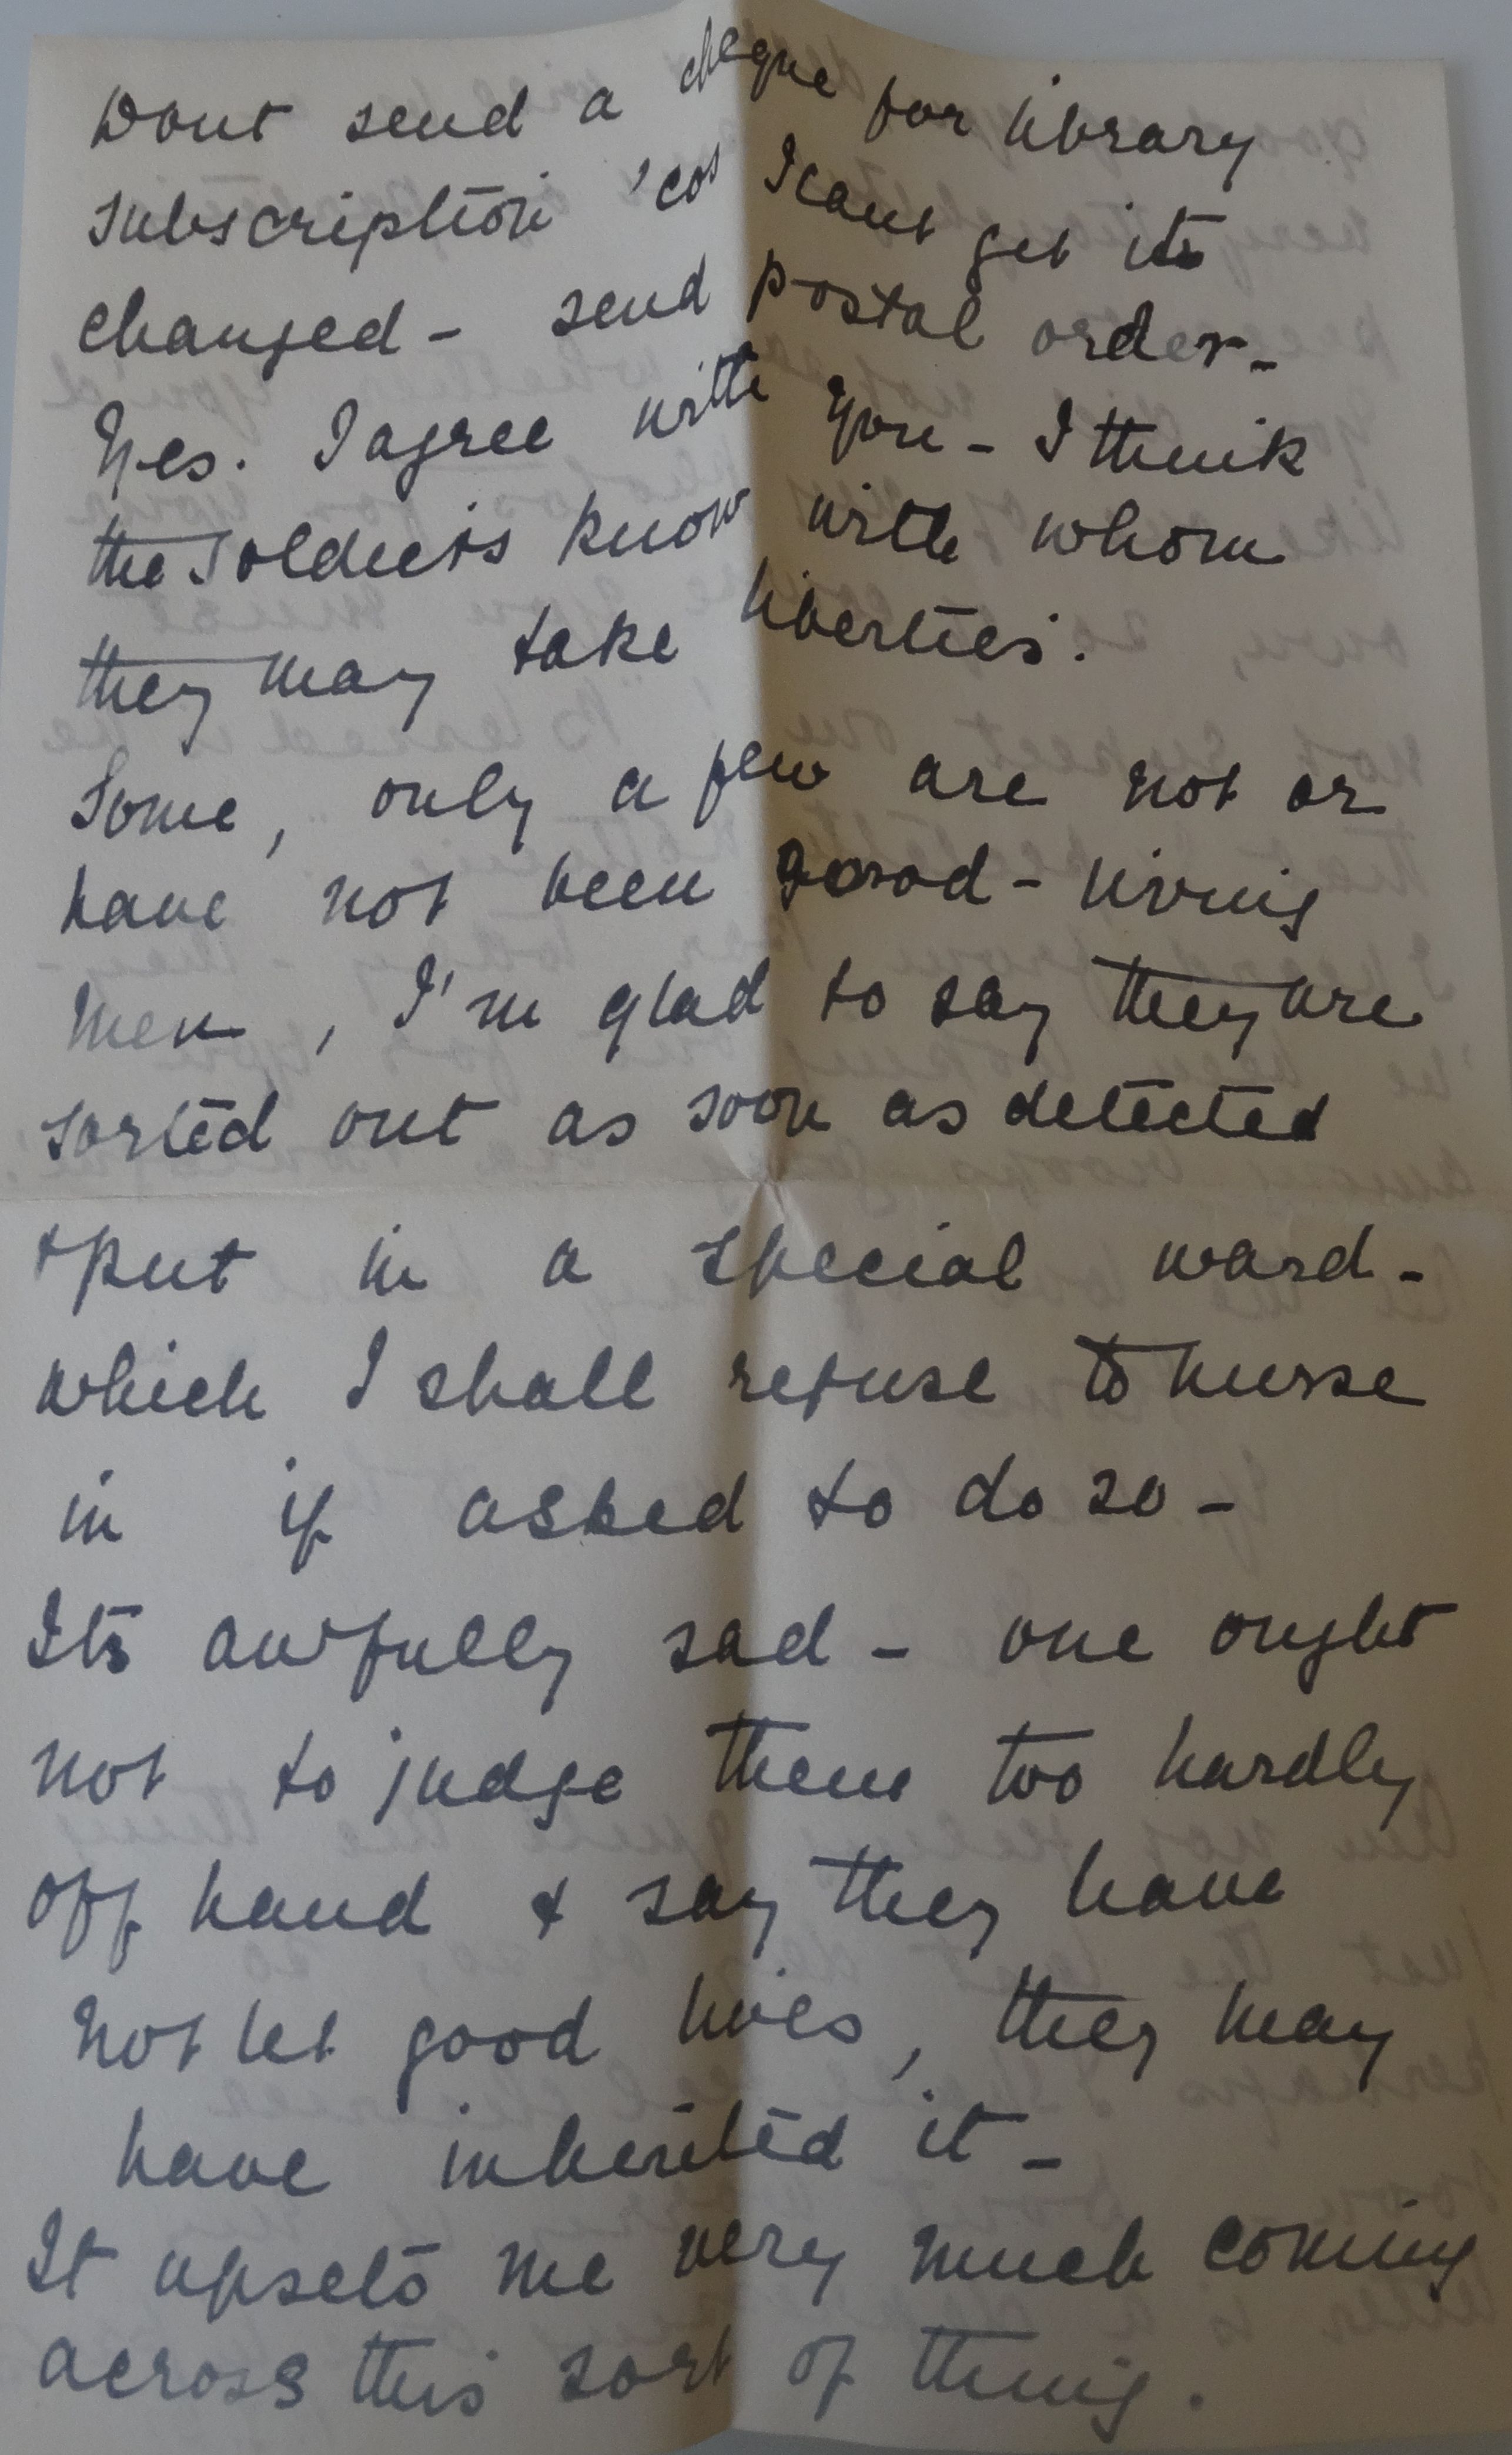 Dont send a cheque for library
subscription 'cos I cant get it
changed - send postal order -
Yes. I agree with you - I think
the soldiers know with whom
they may take liberties.
Some, only a few are not or
have not been good - living
men, I'm glad to say they are
sorted out as soon as detected
& put in a special ward -
which I shall refuse to nurse
in if asked to do so -
Its awfully sad - one ought
not to judge them too hardly
off hand & say they have
not let good lives, they may
have inherited it -
It upsets me very much coming
across this sort of thing.